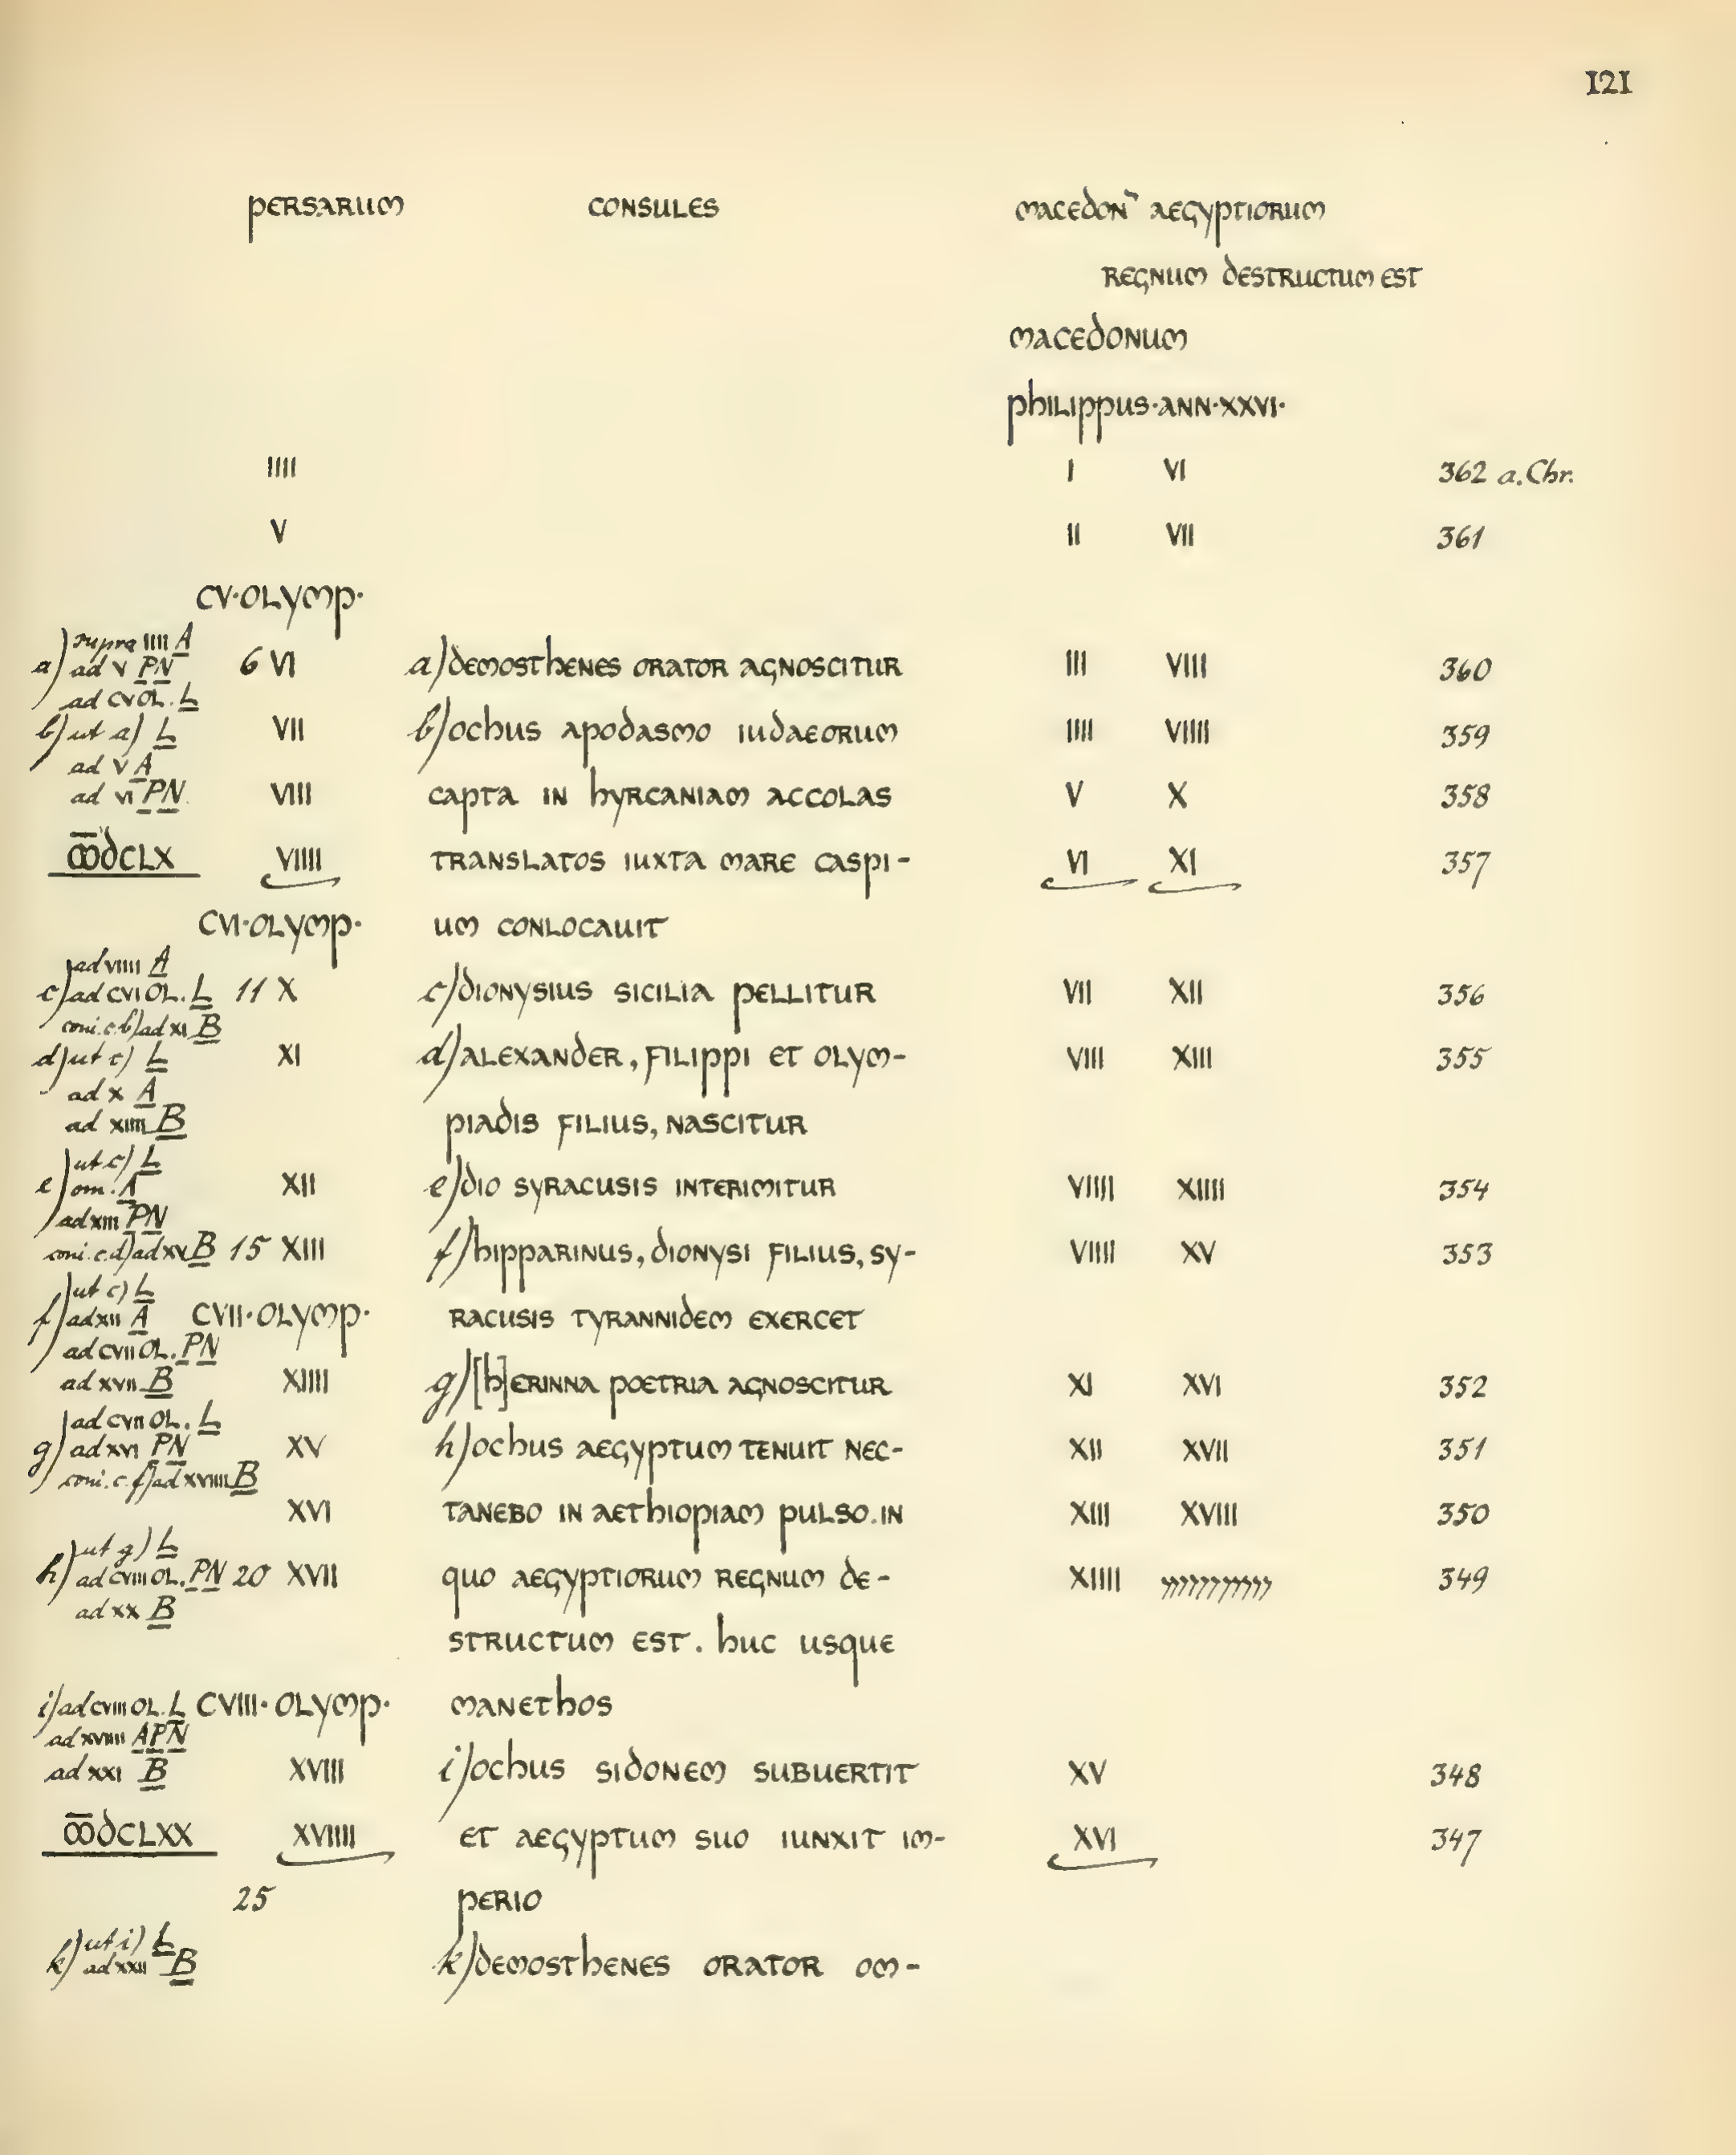 121
PERSARUM CONSULES MACEDON̄ AEGYPTIORUM
REGNUM DESTRUCTUM EST
MACEDONUM
PHILIPPUS·ANN·XXVI·
IIII I VI 362 a.Chr.
V II VII 361
CV·OLYMP·
a) supra IIII A
ad V PN 6 VI a) DEMOSTHENES ORATOR AGNOSCITUR III VIII 360
ad CV OL. L
b) ut a) L VII b) OCHUS APODASMO IUDAEORUM IIII VIIII 359
ad V A
ad VI PN. VIII CAPTA IN HYRCANIAM ACCOLAS V X 358
ꝏDCLX VIIII TRANSLATOS IUXTA MARE CASPI- VI XI 357
CVI·OLYMP· UM CONLOCAUIT
ad VIIII A
c) ad CVI OL. L 11 X c) DIONYSIUS SICILIA PELLITUR VII XII 356
coni. c. b) ad XI B
d) ut c) L XI d) ALEXANDER, FILIPPI ET OLYM- VIII XIII 355
ad X A
ad XIIII B PIADIS FILIUS, NASCITUR
ut c) L
e) om. A XII e) DIO SYRACUSIS INTERIMITUR VIIII XIIII 354
ad XIII PN
coni. c. d) ad XV B 15 XIII f) HIPPARINUS, DIONYSI FILIUS, SY- VIIII XV 353
ut c) L
f) ad XII A CVII·OLYMP· RACUSIS TYRANNIDEM EXERCET
ad CVII OL. PN
ad XVII B XIIII g) [H]ERINNA POETRIA AGNOSCITUR XI XVI 352
ad CVII OL. L
g) ad XVI PN XV h) OCHUS AEGYPTUM TENUIT NEC- XII XVII 351
coni. c. f) ad XVIIII B
XVI TANEBO IN AETHIOPIAM PULSO. IN XIII XVIII 350
ut g) L
h) ad CVIII OL. PN 20 XVII QUO AEGYPTIORUM REGNUM DE- XIIII 349
ad XX B
STRUCTUM EST. HUC USQUE
i) ad CVIII OL. L CVIII·OLYMP· MANETHOS
ad XVIIII APN
ad XXI B XVIII i) OCHUS SIDONEM SUBUERTIT XV 348
ꝏDCLXX XVIIII ET AEGYPTUM SUO IUNXIT IM- XVI 347
25 PERIO
k) ut i) L
ad XXII B k) DEMOSTHENES ORATOR OM-